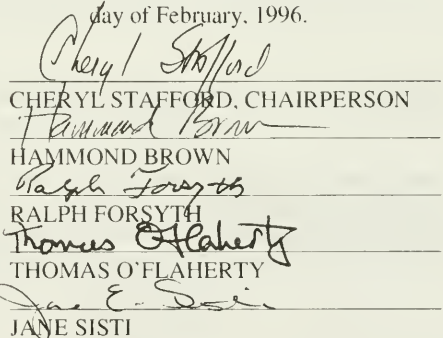 day of February, 1996.
Cheryl Stafford
CHERYL STAFFORD, CHAIRPERSON
Hammond Brown
HAMMOND BROWN
Ralph Forsyth
RALPH FORSYTH
Thomas O'Flaherty
THOMAS O'FLAHERTY
Jane E. Sisti
JANE SISTI